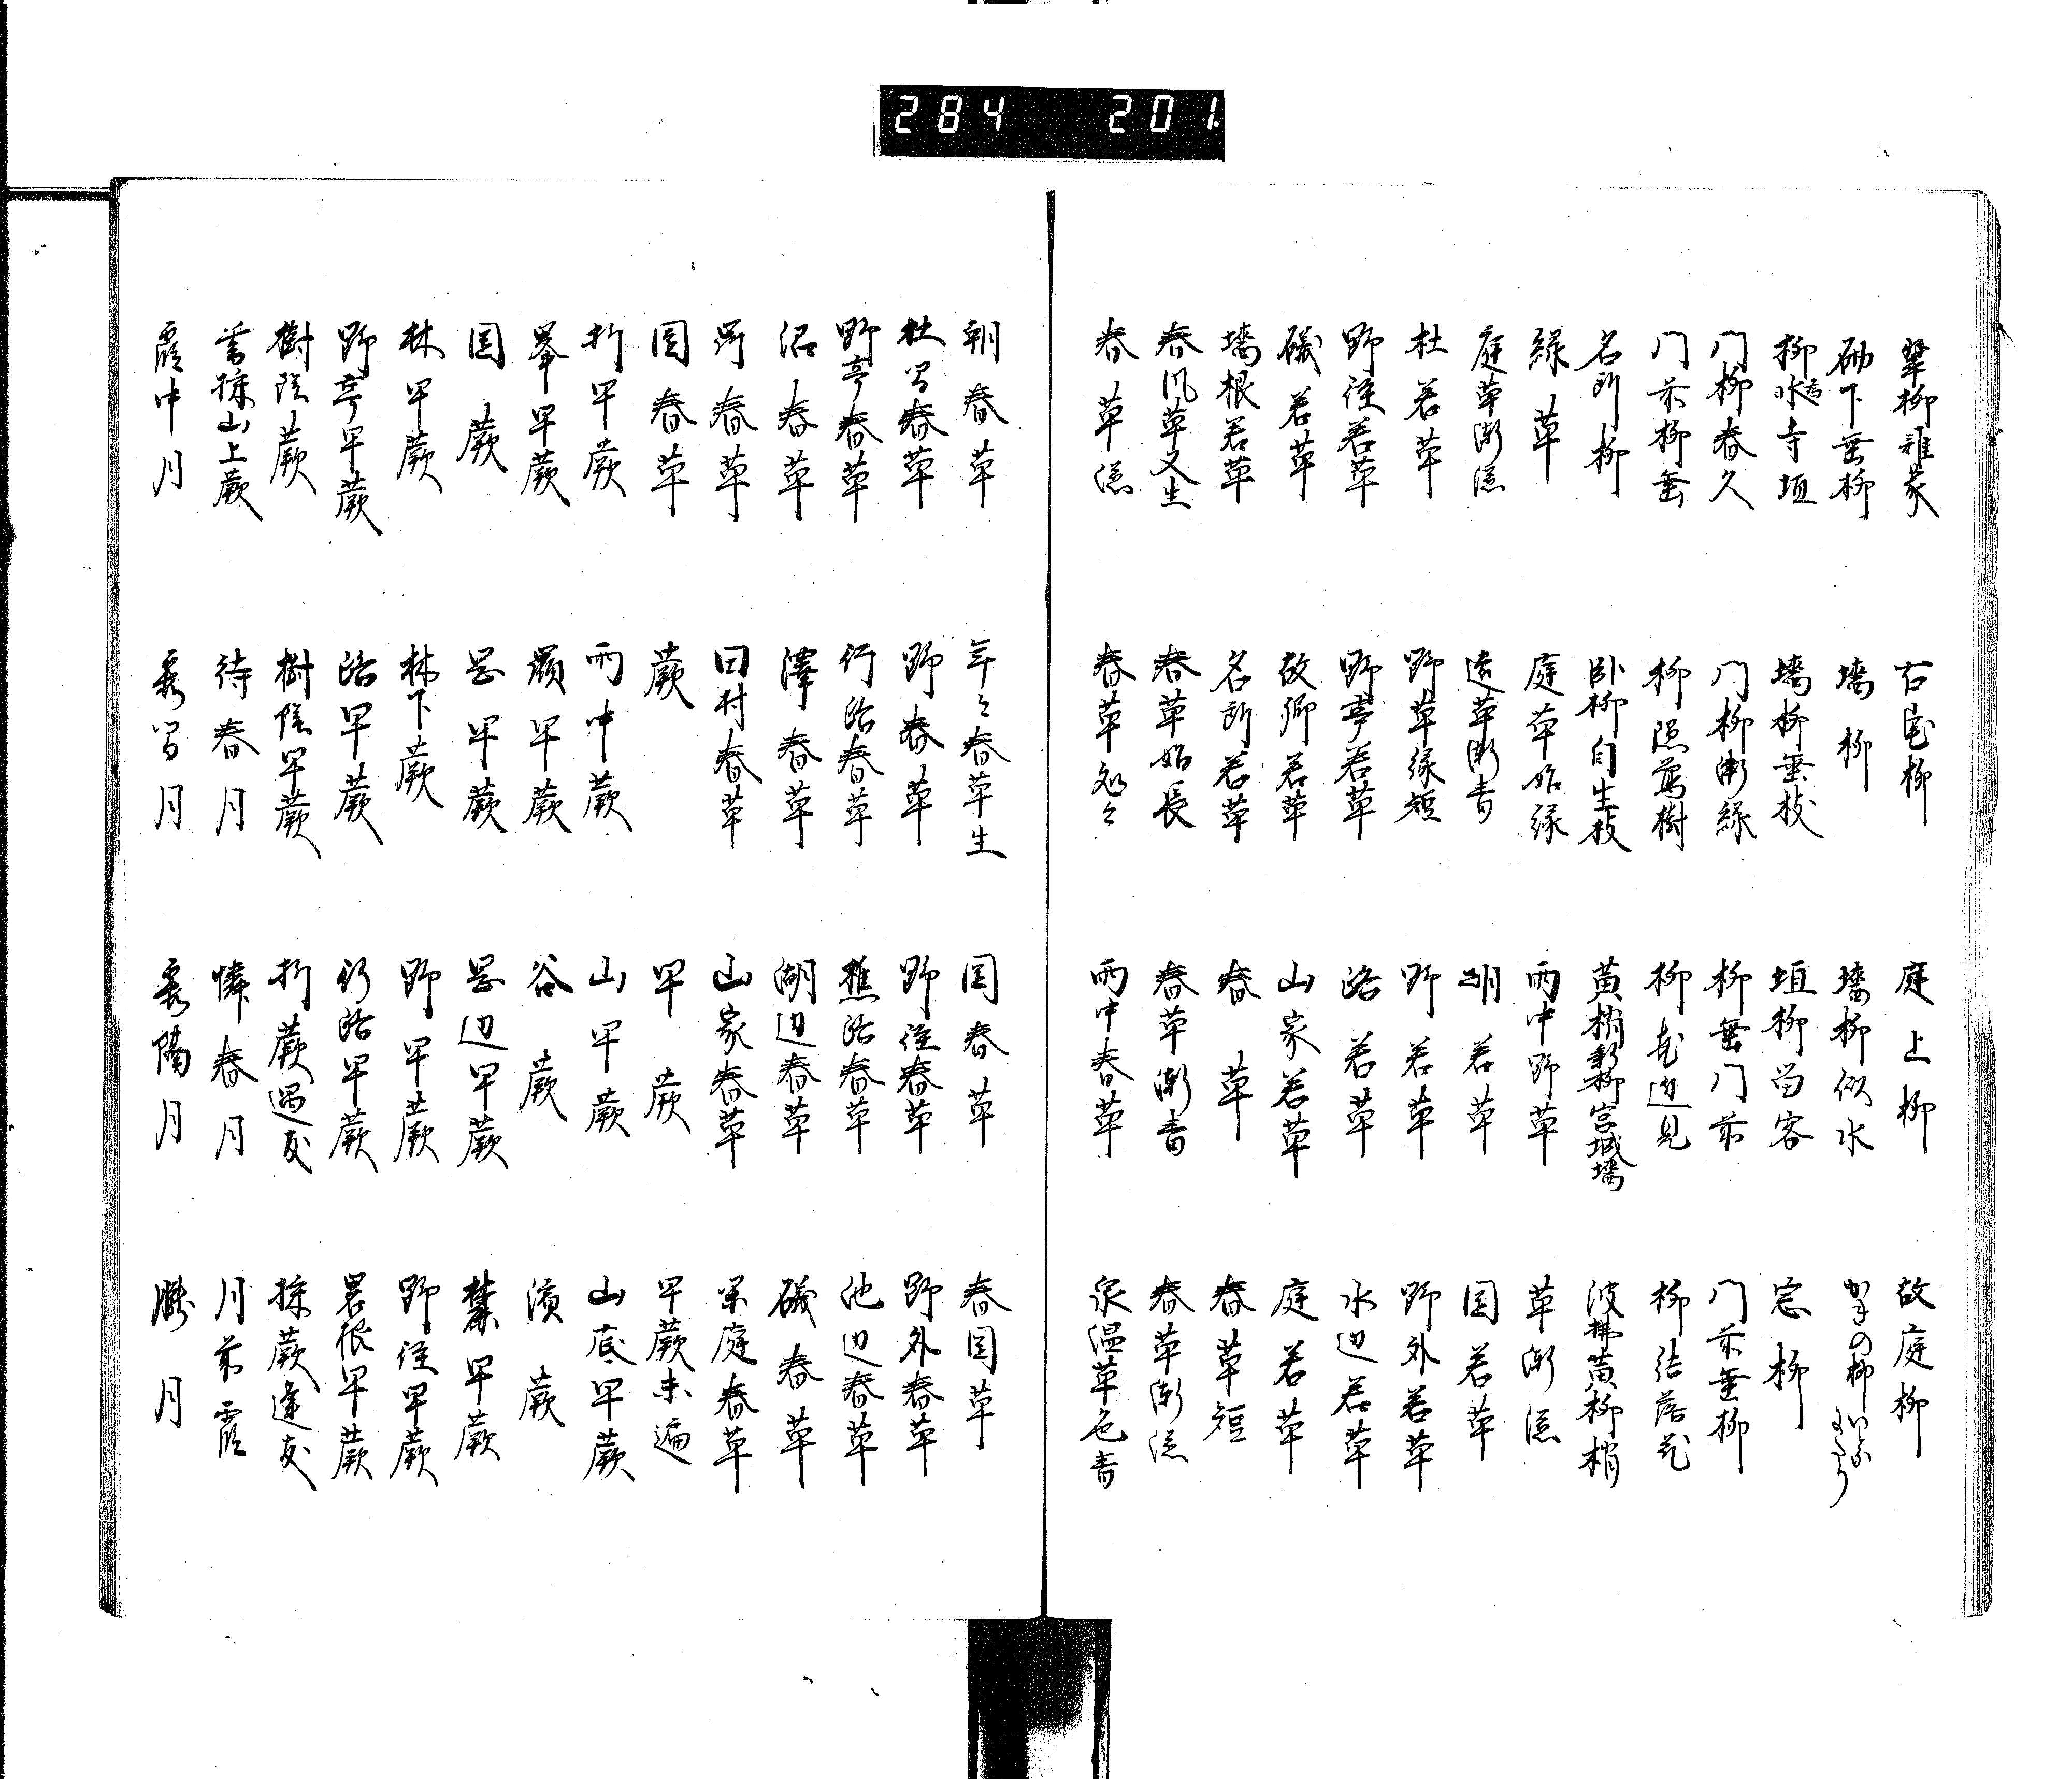 284 201
翠柳誰家
古宅柳
庭上柳
故庭柳
砌下垂柳
墻柳
墻柳似水
かきの柳
柳水寺垣
墻柳垂枝
垣柳留客
窓柳
门柳春久
门柳漸緑
柳垂门前
门前垂柳
门前柳垂
柳隠鶯樹
柳花边見
柳结落花
名所柳
卧柳自生枝
黄梢新柳宮城墻
波拂黄柳梢
緑草
庭草始緑
雨中野草
草漸滋
庭草漸滋
遠草漸青
朝若草
园若草
杜若草
野草緑短
野若草
野外若草
野径若草
野亭若草
路若草
水边若草
磯若草
故郷若草
山家若草
庭若草
墻根若草
名所若草
春草
春草短
春风草又生
春草始長
春草漸青
春草漸滋
春草滋
春草処々
雨中春草
泉温草色青
朝春草
年々春草生
园春草
春园草
杜間春草
野春草
野径春草
野外春草
野亭春草
行路春草
樵路春草
池边春草
沼春草
澤春草
湖边春草
磯春草
岡春草
田村春草
山家春草
閑庭春草
园春草
蕨
早蕨
早蕨未遍
折早蕨
雨中蕨
山早蕨
山底早蕨
峯早蕨
嶺早蕨
谷蕨
濱蕨
园蕨
岡早蕨
岡边早蕨
麓早蕨
林早蕨
林下蕨
野早蕨
野径早蕨
野亭早蕨
路早蕨
行路早蕨
岩根早蕨
樹陰蕨
樹陰早蕨
折蕨遇友
採蕨逢友
蕾採山上蕨
待春月
憐春月
月前霞
霞中月
霞間月
霞隔月
朧月